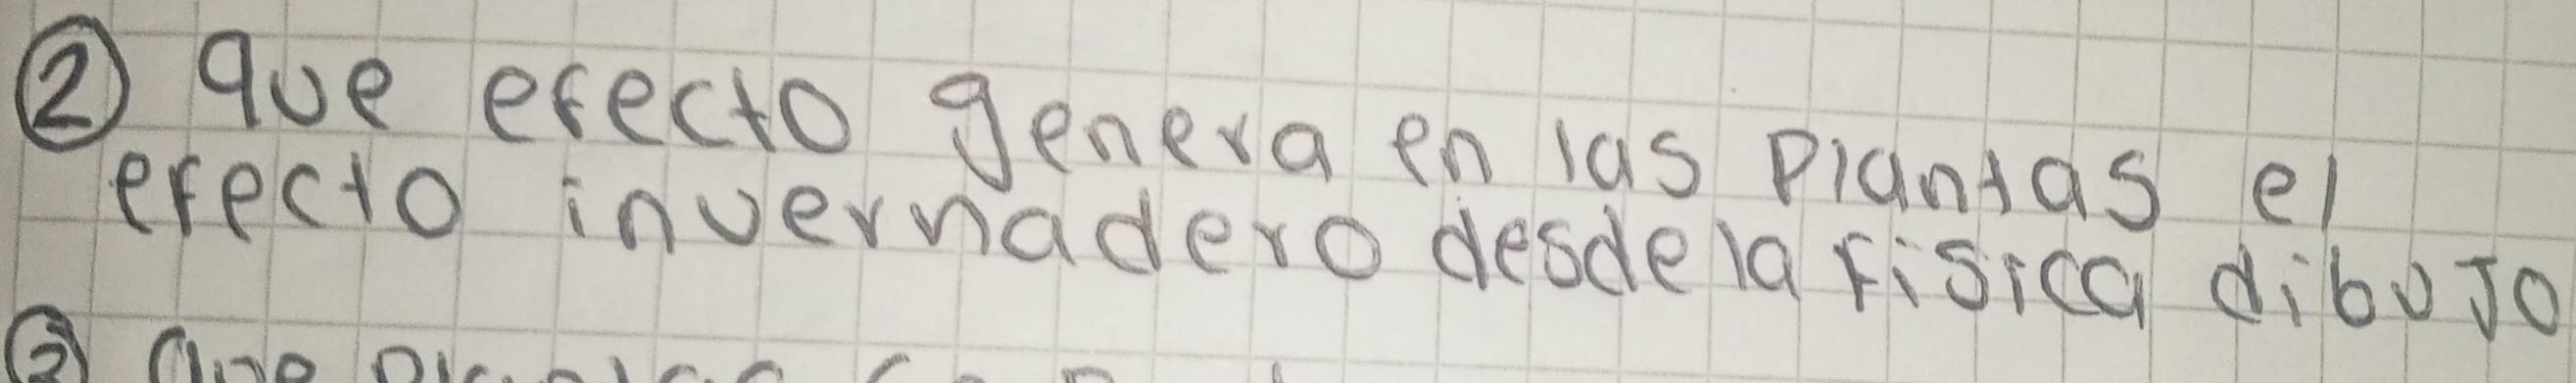 ② que efecto genera en las plantas el
efecto invernadero desde la fisica dibujo
③ que plantas